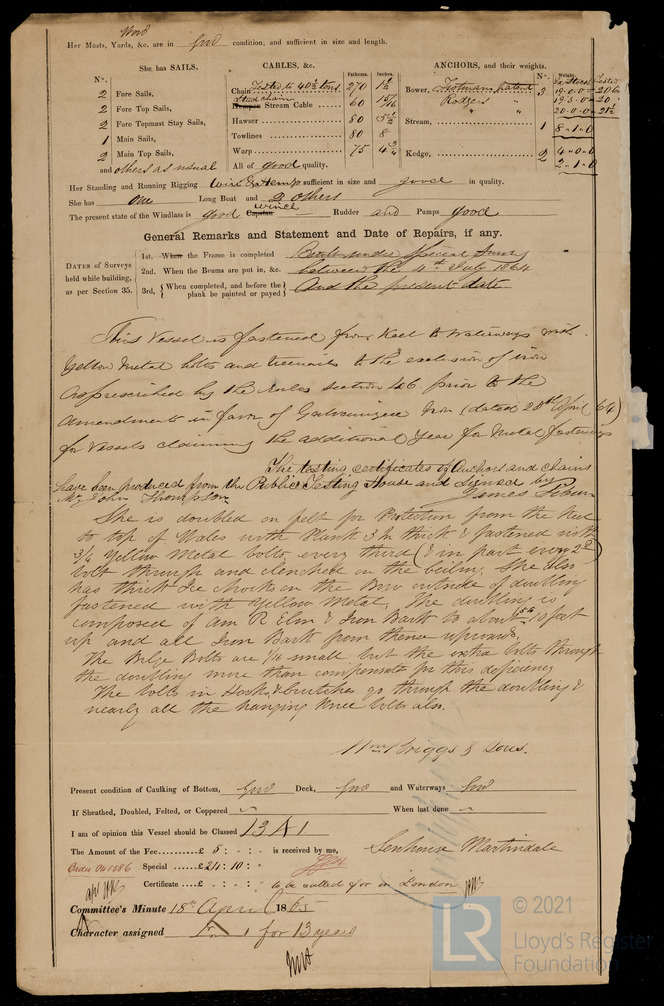 Wood
Her Masts, Yards, &c. are in good condition, and sufficient in size and length.
She has SAILS.
CABLES, &c.
Fathoms. Inches.
ANCHORS, and their weights.
Nº. Weight
Ex Stock Tested
Nº.
2 Fore Sails,
2 Fore Top Sails,
2 Fore Topmast Stay Sails,
1 Main Sails,
2 Main Top Sails,
and others as usual
Chain Tested to 40½ tons 270 1½
Stud chain
Hempen Stream Cable 60 15/16
Hawser 80 8½
Towlines 80 8
Warp 75 4¾
All of good quality.
Bower, Trotmans patent 3 19.0.0 20 6
Rodgers " 19.3.0 20
" " 20.0.0 21½
Stream, 1 8.1.0
Kedge, 2 4.0.0
2.1.0
Her Standing and Running Rigging Wire & Hemp sufficient in size and good in quality.
She has one Long Boat and 2 others
The present state of the Windlass is good Capstan winch Rudder and Pumps good
General Remarks and Statement and Date of Repairs, if any.
DATES of Surveys held while building, as per Section 35.
1st. When the Frame is completed Built under Special Survey
2nd. When the Beams are put in, &c. between the 4th July 1864
3rd, { When completed, and before the plank be painted or payed } And the present date
This Vessel is fastened from Keel to Waterways with
Yellow Metal bolts and treenails to the exclusion of iron
As prescribed by the Rules section 46 prior to the
Amendment in favor of Galvanized Iron (dated 28th April 64)
for Vessels claiming the additional Year for Metal fastenings
The testing certificates of Anchors and chains
have been produced from the Public Testing House and signed by
Mr John Thompson James
She is doubled on felt for Protection from the Keel
to top of Wales with Plank 3 In thick & fastened with
3/4 Yellow Metal bolts, every third (& in part every 2nd)
bolt through and clenched on the ceiling. She also
has thick Ice chocks on the Bow outside of doubling
fastened with Yellow Metal. The doubling is
composed of Am R Elm & Iron Bark to about 10 feet
up and all Iron Bark from thence upwards.
The Bilge Bolts are 1/4 small but the extra bolts through
the doubling more than compensate for this deficiency
The bolts in Hooks & crutches go through the doubling &
nearly all the hanging Knee bolts also.
Wm Briggs & Sons.
Present condition of Caulking of Bottom, Good Deck, Good and Waterways Good
If Sheathed, Doubled, Felted, or Coppered When last done
I am of opinion this Vessel should be Classed 13 A 1
The Amount of the Fee......£ 5 : - : - is received by me,
Senhouse Martindale
Order 061586 Special ......£24 : 10 : -
Certificate ....£ - : - : - to be called for in London
Committee's Minute 18th April 1865
Character assigned A 1 for 13 years
LR
© 2021
Lloyd's Register
Foundation